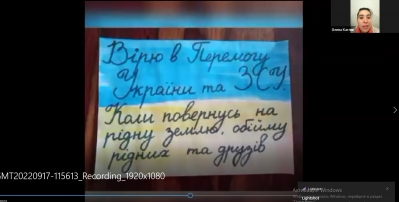 Вірю в Перемогу
України та ЗСУ.
Коли повернусь на
рідну землю, обійму
рідних та друзів
GMT20220917-115613_Recording_1920x1080
Activate Windows
Lightshot